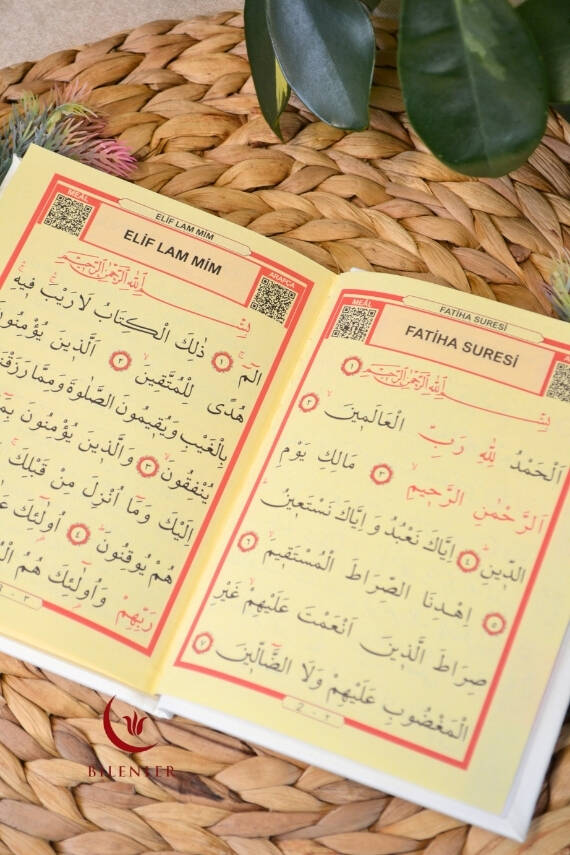 FATİHA SURESİ
MEÂL
FATİHA SURESİ
بِسْمِ اللّٰهِ الرَّحْمٰنِ الرَّحٖيمِ ١
اَلْحَمْدُ لِلّٰهِ رَبِّ الْعَالَمٖينَ ٢
اَلرَّحْمٰنِ الرَّحٖيمِ ٣ مَالِكِ يَوْمِ
الدّٖينِ ٤ اِيَّاكَ نَعْبُدُ وَ اِيَّاكَ نَسْتَعٖينُ
٥ اِهْدِنَا الصِّرَاطَ الْمُسْتَقٖيمَ ٦
صِرَاطَ الَّذٖينَ اَنْعَمْتَ عَلَيْهِمْ غَيْرِ
الْمَغْضُوبِ عَلَيْهِمْ وَلَا الضَّالّٖينَ ٧
2 - ٢
ELİF LAM MİM
MEÂL
ELİF LAM MİM
ARAPÇA
بِسْمِ اللّٰهِ الرَّحْمٰنِ الرَّحٖيمِ
الٓمٓ ١ ذٰلِكَ الْكِتَابُ لَا رَيْبَ فٖيهِ
هُدًى لِلْمُتَّقٖينَ ٢ اَلَّذٖينَ يُؤْمِنُونَ
بِالْغَيْبِ وَيُقٖيمُونَ الصَّلٰوةَ وَمِمَّا رَزَقْنَا
يُنْفِقُونَ ٣ وَالَّذٖينَ يُؤْمِنُونَ بِمَٓا
اِلَيْكَ وَمَٓا اُنْزِلَ مِنْ قَبْلِكَ
هُمْ يُوقِنُونَ ٤ اُولٰٓئِكَ
رَبِّهِمْ وَاُولٰٓئِكَ هُمُ
3 - ٣
BİLENLER